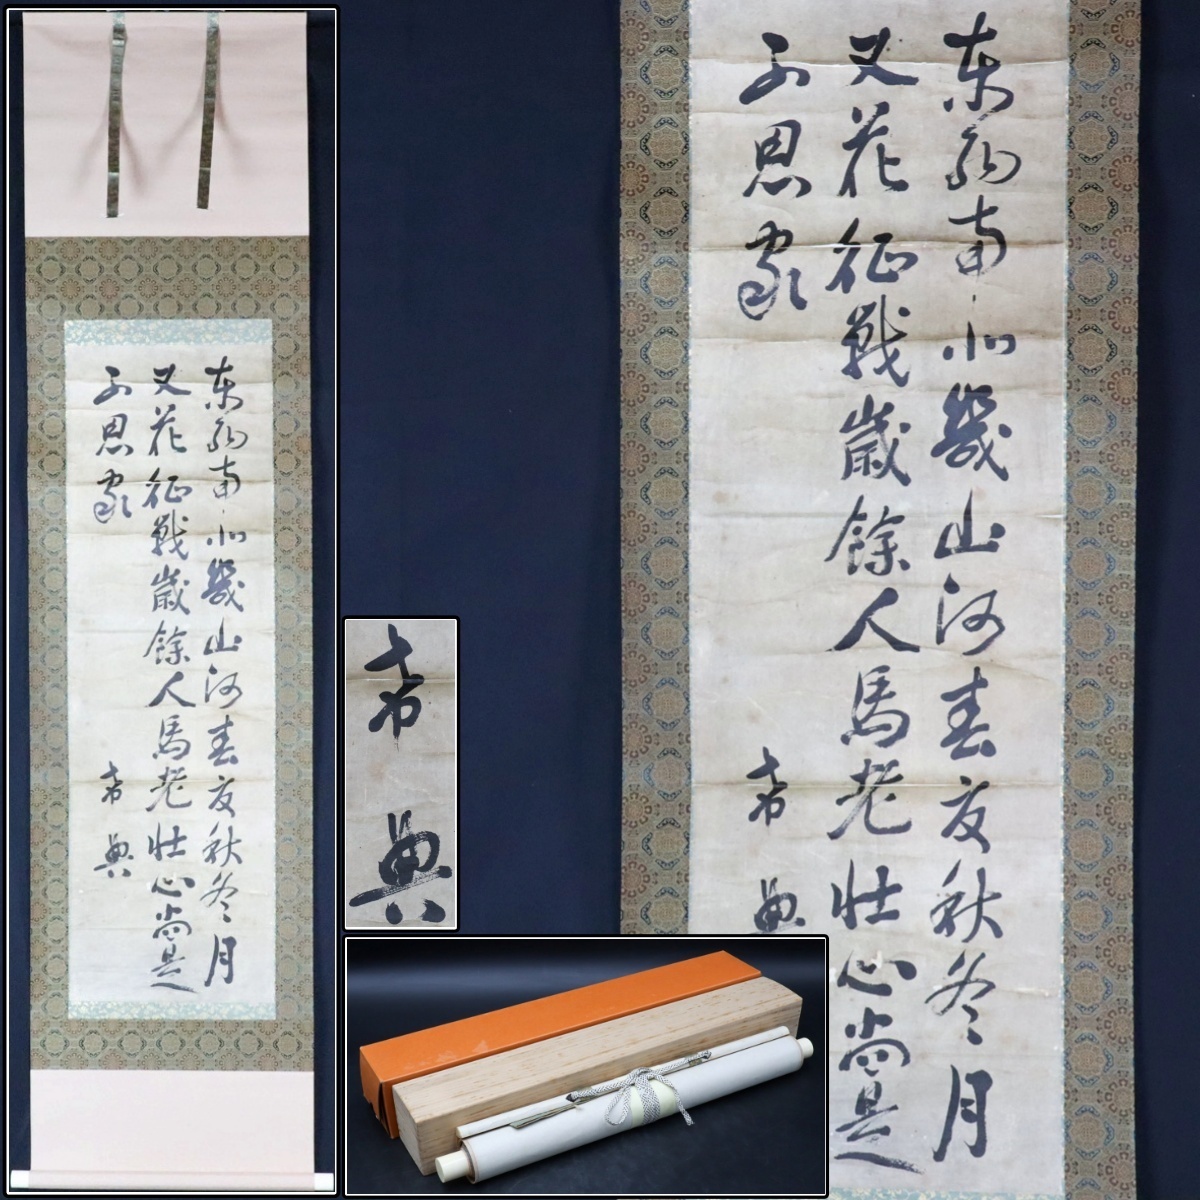 東西南北幾山河春夏秋冬月
又花征戰歳餘人馬老壮心尚是
不思家
希典
希典
東西南北幾山河春夏秋冬月
又花征戰歳餘人馬老壮心尚是
不思家
希典